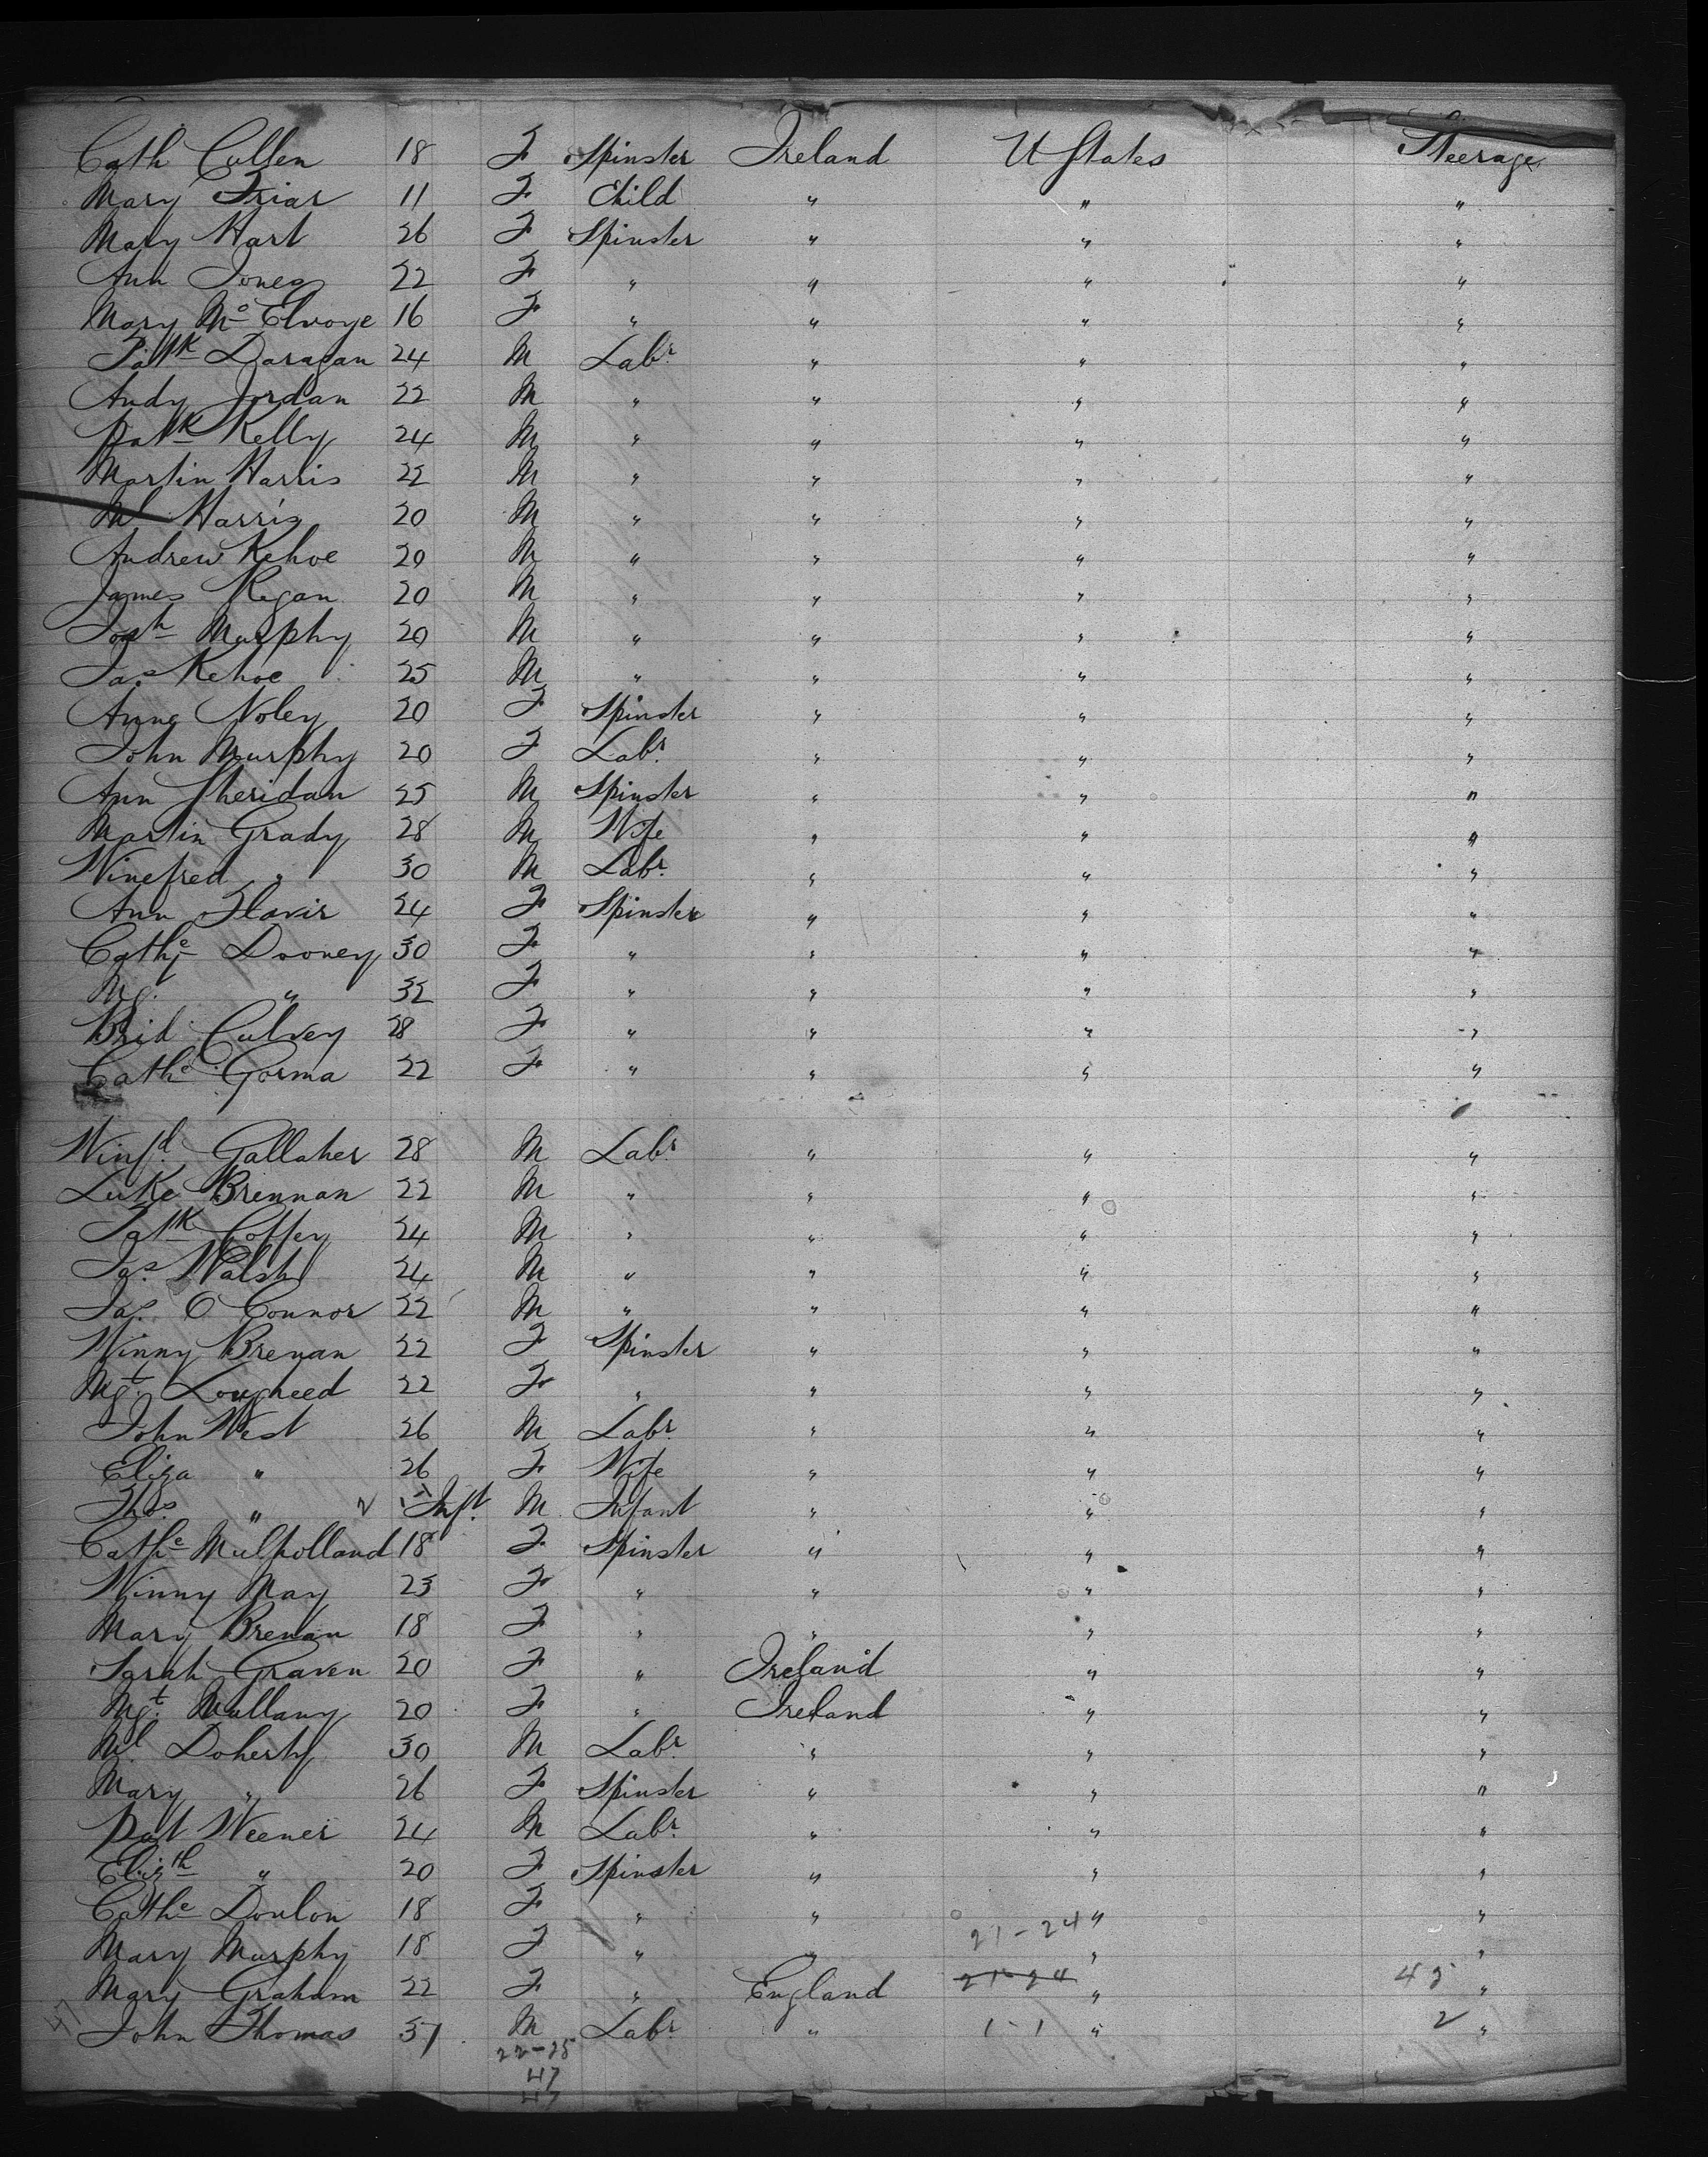 Cath Cullen 18 F Spinster Ireland U States Steerage
Mary Friar 11 F Child " " "
Mary Hart 26 F Spinster " " "
Ann Jones 22 F " " " "
Mary Mc Elvoye 16 F " " " "
Patk Daragan 24 M Labr " " "
Andy Jordan 22 M " " " "
Patk Kelly 24 M " " " "
Martin Harris 22 M " " " "
Ml Harris 20 M " " " "
Andrew Kehoe 20 M " " " "
James Regan 20 M " " " "
Josh Murphy 20 M " " " "
Jas Kehoe 25 M " " " "
Anne Noley 20 F Spinster " " "
John Murphy 20 F Labr " " "
Ann Sheridan 25 M Spinster " " "
Martin Grady 28 M Wife " " "
Winefred " 30 M Labr " " "
Ann Flavir 24 F Spinster " " "
Cathe Dooney 30 F " " " "
Mg. " 32 F " " " "
Brid Culvey 28 F " " " "
Cathe Gorma 22 F " " " "
Winfd Gallaher 28 M Labr " " "
Luke Brennan 22 M " " " "
Patk Coffey 24 M " " " "
Jas. Walsh 24 M " " " "
Jas. O Connor 22 M " " " "
Winny Brenan 22 F Spinster " " "
Mgt. Lougheed 22 F " " " "
John West 26 M Labr " " "
Eliza " 26 F Wife " " "
Thos. " Inft. M Infant " " "
Cathe Mulholland 18 F Spinster " " "
Winny May 23 F " " " "
Mary Brenan 18 F " " " "
Sarah Graven 20 F " Ireland " "
Mgt. Mullany 20 F " Ireland " "
Ml. Doherty 30 M Labr " " "
Mary " 26 F Spinster " " "
Pat Weener 24 M Labr " " "
Elizth " 20 F Spinster " " "
Cathe Donlon 18 F " " " "
21-24
Mary Murphy 18 F " " " "
Mary Graham 22 F " England 21-24 " 45 "
47 John Thomas 31 M Labr " 1-1 " 2 "
22-25
47
47